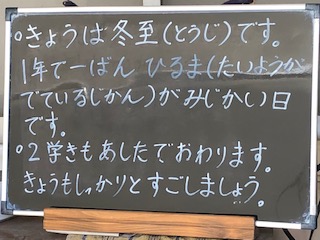 ○きょうは冬至(とうじ)です。
1年で一ばん ひるま(たいようが
でているじかん)が みじかい日
です。
○2学きもあしたでおわります。
きょうもしっかりとすごしましょう。